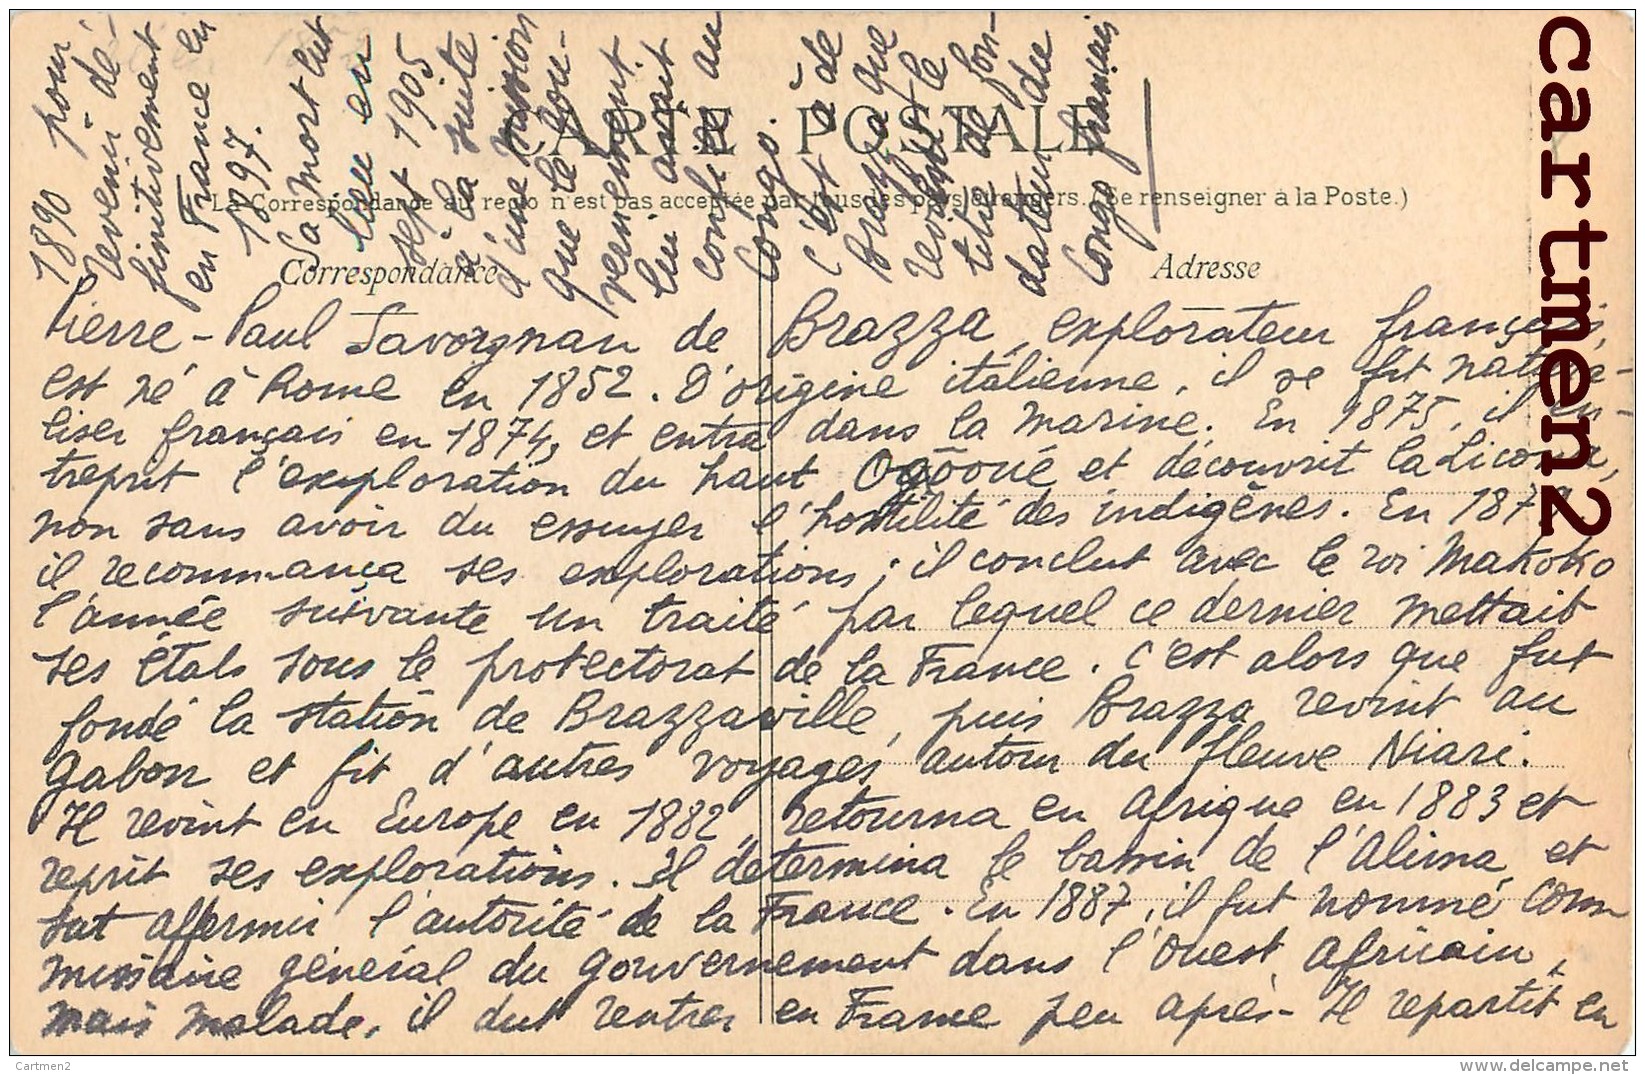 CARTE POSTALE
La Correspondance au recto n'est pas acceptée par tous les pays étrangers. (Se renseigner à la Poste.)
Correspondance
Adresse
Pierre-Paul Savorgnan de Brazza, explorateur français,
est né à Rome en 1852. D'origine italienne, il se fit natura-
liser français en 1874, et entra dans la marine. En 1875, il en-
treprit l'exploration du haut Ogôoué et découvrit la Licona,
non sans avoir du essuyer l'hostilité des indigènes. En 1879
il recommança ses explorations; il conclut avec le roi Makoko
l'année suivante un traité par lequel ce dernier mettait
ses états sous le protectorat de la France. C'est alors que fut
fondé la station de Brazzaville, puis Brazza revint au
Gabon et fit d'autres voyages autour du fleuve Niari.
Il revint en Europe en 1882, retourna en Afrique en 1883 et
reprit ses explorations. Il détermina le bassin de l'Alima et
sut affermir l'autorité de la France. En 1887, il fut nommé com
missaire général du Gouvernement dans l'ouest africain,
mais malade, il dut rentrer en France peu après. Il repartit en
1890 pour
revenir dé-
finitivement
en France en
1897.
Sa mort eut
lieu en
sept 1905
à la suite
d'une mission
que le Gou-
vernement
lui avait
confiée au
Congo.
C'est à de
Brazza que
revient le
titre de fon-
dateur du
Congo français
cartmen2
Cartmen2
www.delcampe.net